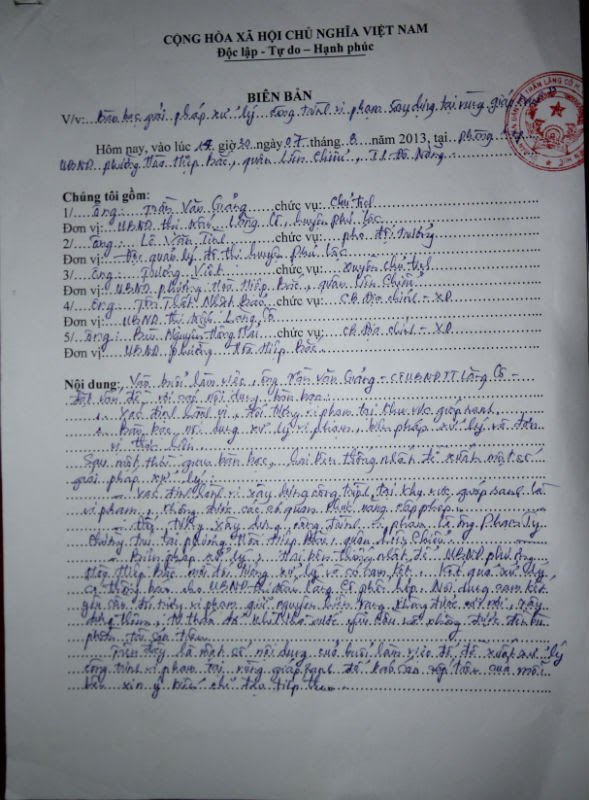 CỘNG HÒA XÃ HỘI CHỦ NGHĨA VIỆT NAM
Độc lập - Tự do – Hạnh phúc
BIÊN BẢN
V/v: Bàn bạc giải pháp xử lý công trình vi phạm xây dựng tại vùng giáp ranh
Hôm nay, vào lúc giờ 30 ngày 07 tháng 8 năm 2013, tại phòng họp
UBND phường Hòa Hiệp Bắc, quận Liên Chiểu, TP. Đà Nẵng
Chúng tôi gồm:
1/ ông: Trần Văn Quảng chức vụ: Chủ tịch
Đơn vị: UBND thị trấn Lăng Cô, huyện Phú Lộc
2/ ông: Lê Văn chức vụ: phó đội trưởng
Đơn vị: Đội quản lý đô thị huyện Phú Lộc
3/ ông: Dương Viết chức vụ: chủ tịch
Đơn vị: UBND phường Hòa Hiệp Bắc, quận Liên Chiểu
4/ ông: Tôn Thất Nhật Bảo chức vụ: CB Địa chính - XD
Đơn vị: UBND thị trấn Lăng Cô
5/ ông: Bùi Nguyên Hồng chức vụ: CB Địa chính - XD
Đơn vị UBND phường Hòa Hiệp Bắc
Nội dung: Vào buổi làm việc, ông Trần Văn Quảng - CTUBND TT Lăng Cô -
đặt vấn đề với nội dung bàn bạc:
- Xác định hành vi, đối tượng vi phạm tại khu vực giáp ranh
- Bàn bạc nội dung xử lý vi phạm, biện pháp xử lý và đơn
vị thực hiện
Sau một thời gian bàn bạc, hai bên thống nhất đề xuất một số
giải pháp xử lý
- Xác định hành vi xây dựng công trình tại khu vực giáp ranh là
vi phạm, không được các cơ quan chức năng cấp phép
- Đối tượng xây dựng công trình vi phạm là ông Phạm
trú tại phường Hòa Hiệp Bắc, quận Liên Chiểu
- Biện pháp xử lý: Hai bên thống nhất để UBND phường
Hòa Hiệp Bắc mời đối tượng xử lý và có cam kết. Kết quả xử lý
có thông báo cho UBND thị trấn Lăng Cô phối hợp. Nội dung cam kết
yêu cầu đối tượng vi phạm giữ nguyên hiện trạng không được xây
dựng thêm, tự tháo dỡ khi nhà nước yêu cầu và không được đền bù
Trên đây là một số nội dung của buổi làm việc để đề xuất xử lý
công trình vi phạm tại vùng giáp ranh để báo cáo cấp trên của mỗi
bên xin ý kiến chỉ đạo tiếp theo